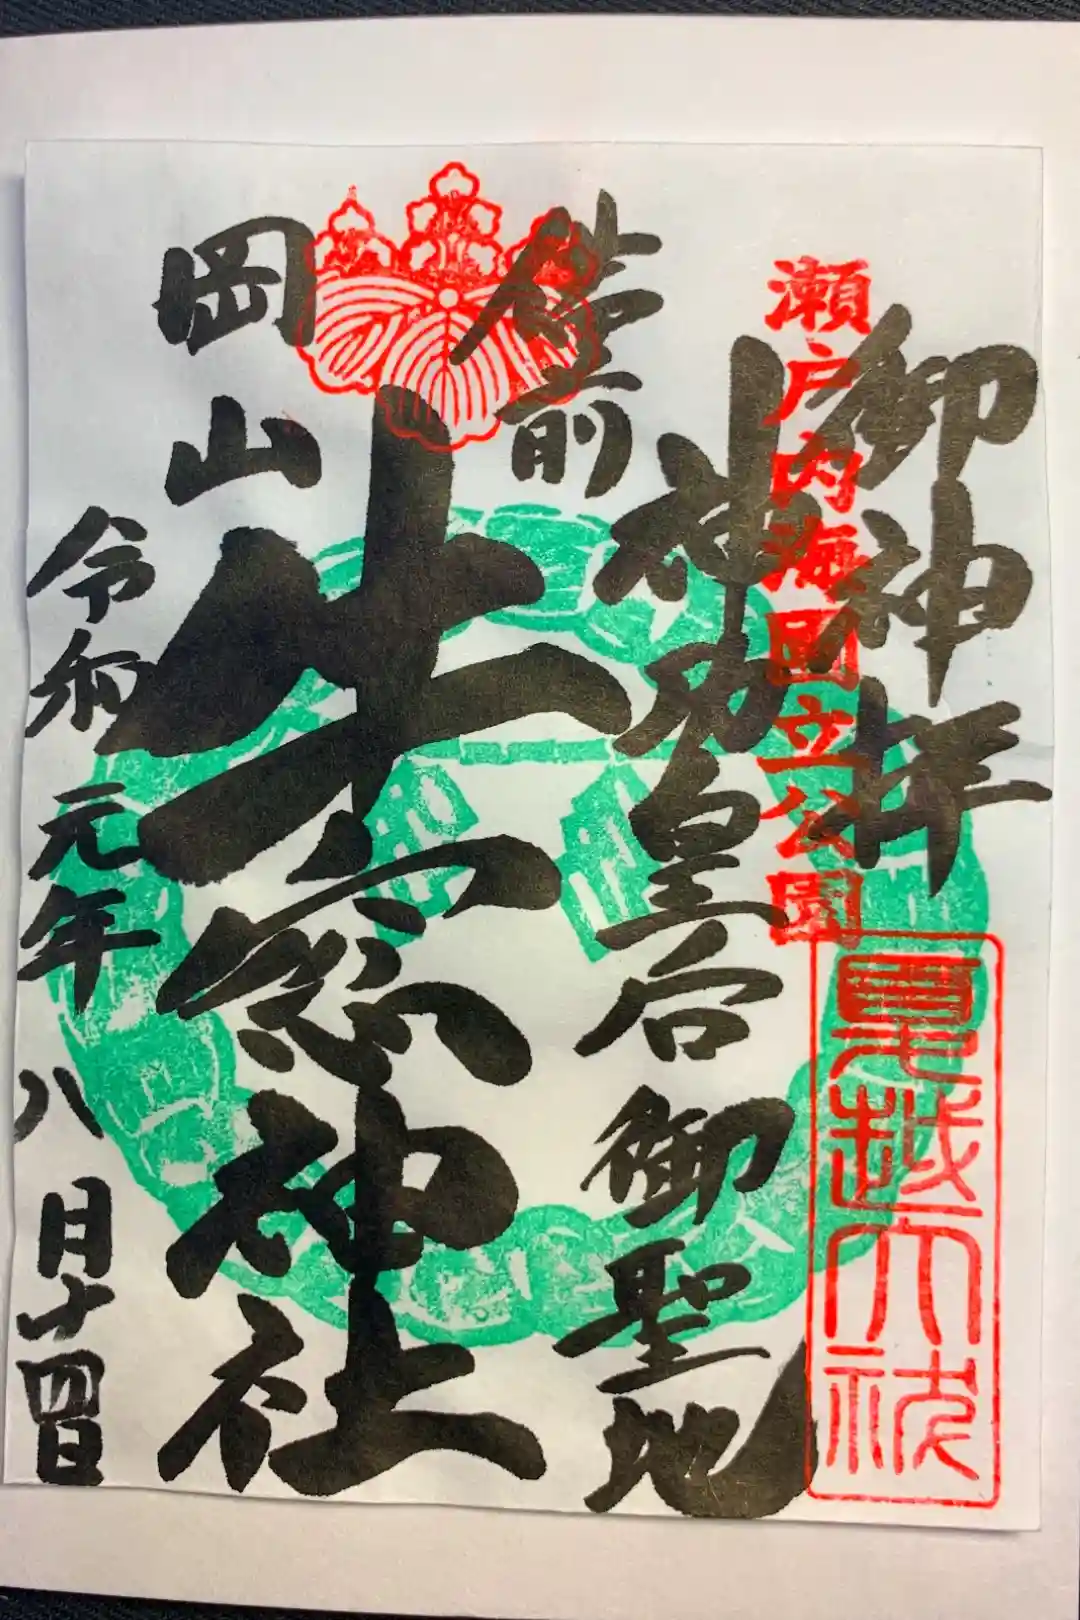 御神拝
瀬戸内海国立公園
夏越大祓
備前
神功皇后御聖地
岡山
牛窓神社
令和元年八月十四日